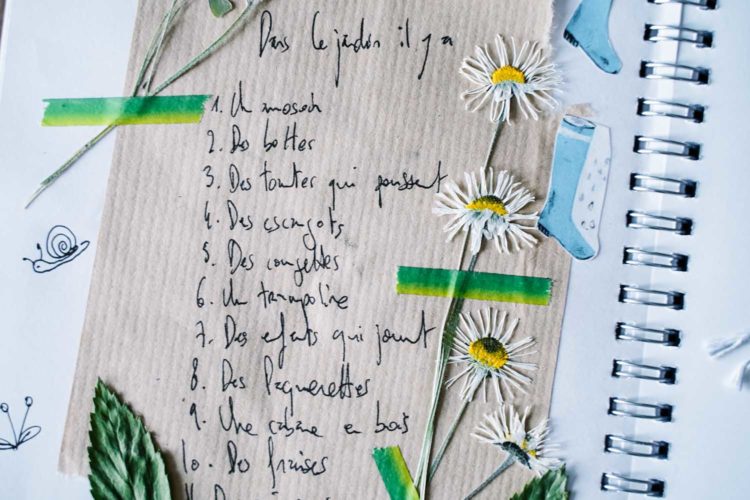 Dans le jardin il y a
1. Un
2. Des bottes
3. Des tomtes qui poussent
4. Des escargots
5. Des courgettes
6. Un trampoline
7. Des efants qui jouent
8. Des Paquerettes
9. Une cabane en bois
10. Des fraises